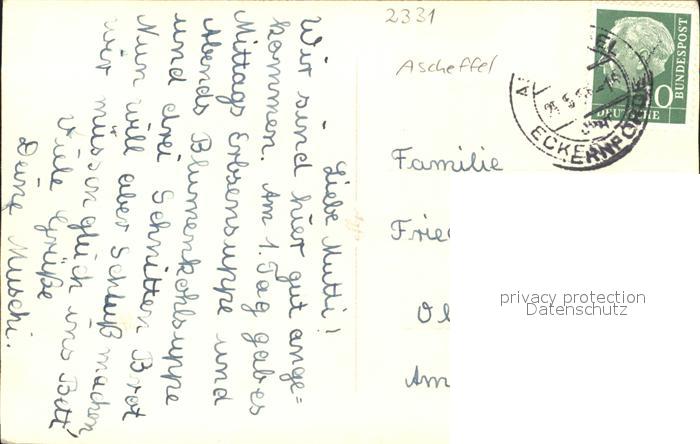 Liebe Mutti!
Wir sind hier gut ange=
kommen. Am 1. Tag gab es
Mittags Erbsensuppe und
Abends Blumenkohlsuppe
und drei Schnitten Brot
Nun will aber Schluß machen,
wir müssen gleich ins Bett,
Viele Grüße
Deine Muschi.
2331
Ascheffel
DEUTSCHE
BUNDESPOST
ECKERNFÖRDE
Familie
Fried
Ol
Am
privacy protection
Datenschutz